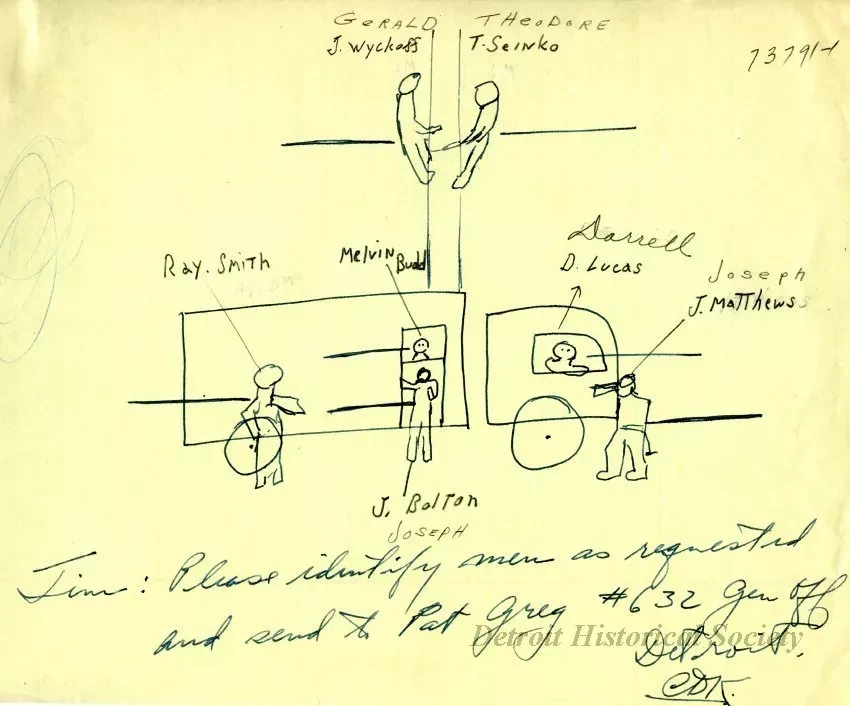 GERALD THEODORE
J. Wyckoff T. Seinko
73791-1
Darrell
Ray. Smith Melvin Budd D. Lucas Joseph
J. Matthews
J. Bolton
JOSEPH
Jim: Please identify men as requested
and send to Pat Greg #632 Gen Off
Detroit.
CDK.
Detroit Historical Society